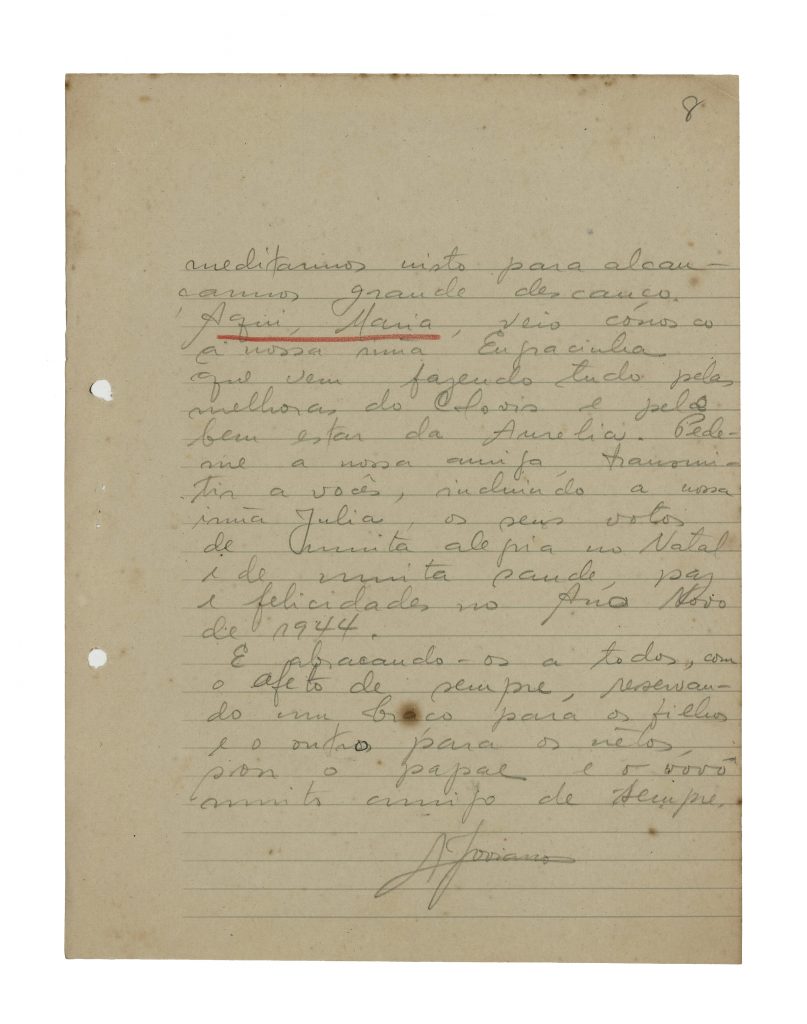 8
meditarmos nisto para alcan-
çarmos grande descanço.
Aqui, Maria, veio conosco
a nossa irmã Engracinha
que vem fazendo tudo pelas
melhoras do Clovis e pelo
bem estar da Aurelia. Pede-
me a nossa amiga transmi-
tir a vocês, incluindo a nossa
irmã Julia, os seus votos
de muita alegria no Natal
e de muita saude, paz
e felicidades no Ano Novo
de 1944.
E abraçando-os a todos, com
o afeto de sempre, reservan-
do um braço para os filhos
e o outro para os nétos,
sou o papae e o vovô
muito amigo de sempre,
A Joviano